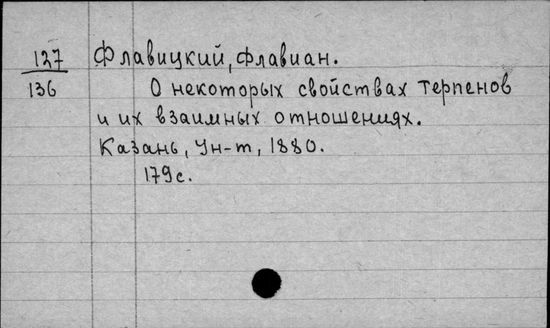 127 Флавицкий, Флавиан.
136 О некоторых свойствах терпенов
и их взаимных отношениях.
Казань, Ун-т, 1880.
179 с.